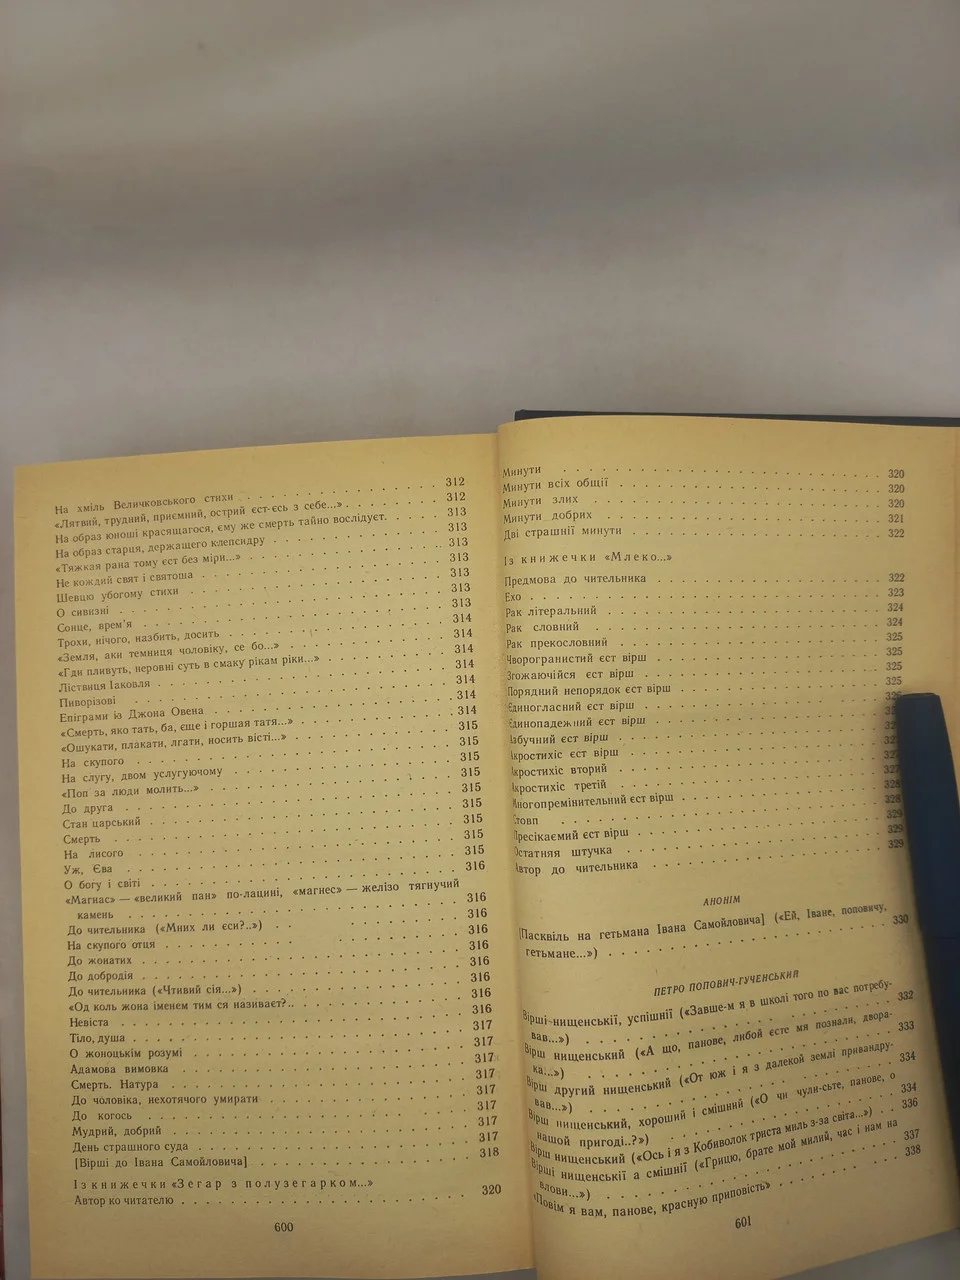 На хміль Величковського стихи 312
«Лятвий, трудний, приємний, острий єст-єсь з себе...» 312
На образ юноші красящагося, єму же смерть тайно вослідует. 313
На образ старця, держащего клепсидру 313
«Тяжкая рана тому єст без міри...» 313
Не кождий свят і святоша 313
Шевцю убогому стихи 313
О сивизні 313
Сонце, врем'я 313
Трохи, нічого, назбить, досить 314
«Земля, аки темниця чоловіку, се бо...» 314
«Гди пливуть, неровні суть в смаку рікам ріки...» 314
Ліствиця Іаковля 314
Пиворізові 314
Епіграми із Джона Овена 314
«Смерть, яко тать, ба, єще і горшая татя...» 314
«Ошукати, плакати, лгати, носить вісті...» 315
На скупого 315
На слугу, двом услугуючому 315
«Поп за люди молить...» 315
До друга 315
Стан царський 315
Смерть 315
На лисого 315
Уж, Єва 315
О богу і світі 316
«Магнас» — «великий пан» по-лацині, «магнес» — желізо тягнучий
камень 316
До чительника («Мних ли єси?..») 316
На скупого отця 316
До жонатих 316
До добродія 316
До чительника («Чтивий сія...») 316
«Од коль жона іменем тим ся називаєт?.. 316
Невіста 316
Тіло, душа 317
О жоноцькім розумі 317
Адамова вимовка 317
Смерть. Натура 317
До чоловіка, нехотячого умирати 317
До когось 317
Мудрий, добрий 317
День страшного суда 317
[Вірші до Івана Самойловича] 318
Із книжечки «Зегар з полузегарком...»
Автор ко читателю 320
600
Минути 320
Минути всіх общії 320
Минути злих 320
Минути добрих 321
Дві страшнії минути 322
Із книжечки «Млеко...»
Предмова до чительника 322
Ехо 323
Рак літеральний 324
Рак словний 324
Рак прекословний 325
Чворогранистий єст вірш 325
Згожаючійся єст вірш 325
Порядний непорядок єст вірш 325
Єдиногласний єст вірш
Єдинопадежний єст вірш
Азбучний єст вірш
Акростихіс єст вірш
Акростихіс второй
Акростихіс третій
Многопремінительний єст вірш 328
Стовп 328
Пресікаємий єст вірш 329
Остатняя штучка 329
Автор до чительника 329
АНОНІМ
[Пасквіль на гетьмана Івана Самойловича] («Ей, Іване, поповичу,
гетьмане...») 330
ПЕТРО ПОПОВИЧ-ГУЧЕНСЬКИЙ
Вірші нищенськії, успішнії («Завше-м я в школі того по вас потребу-
вав...») 332
Вірш нищенський («А що, панове, либой єсте мя познали, двора-
ка...») 333
Вірш другий нищенський («От юж і я з далекой землі привандру-
вав...») 334
Вірш нищенський, хороший і смішний («О чи чули-сьте, панове, о
нашой пригоді..?») 334
Вірш нищенський («Ось і я з Кобиволок триста миль з-за світа...») 336
Вірші нищенськії а смішнії («Грицю, брате мой милий, час і нам на
влови...») 337
«Повім я вам, панове, красную приповість» 338
601